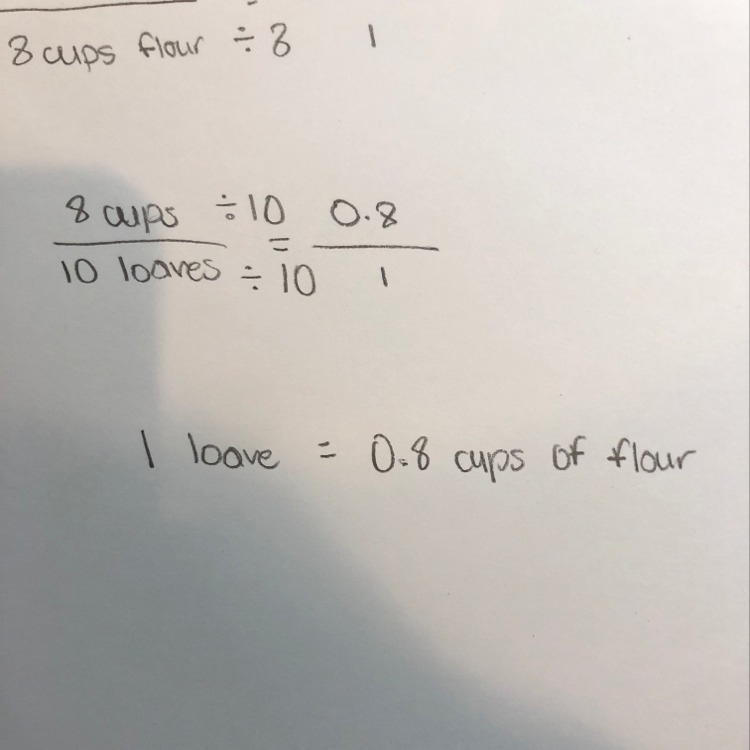 8 cups flour ÷ 8 1
8 cups ÷ 10 = 0.8
10 loaves ÷ 10 1
1 loave = 0.8 cups of flour